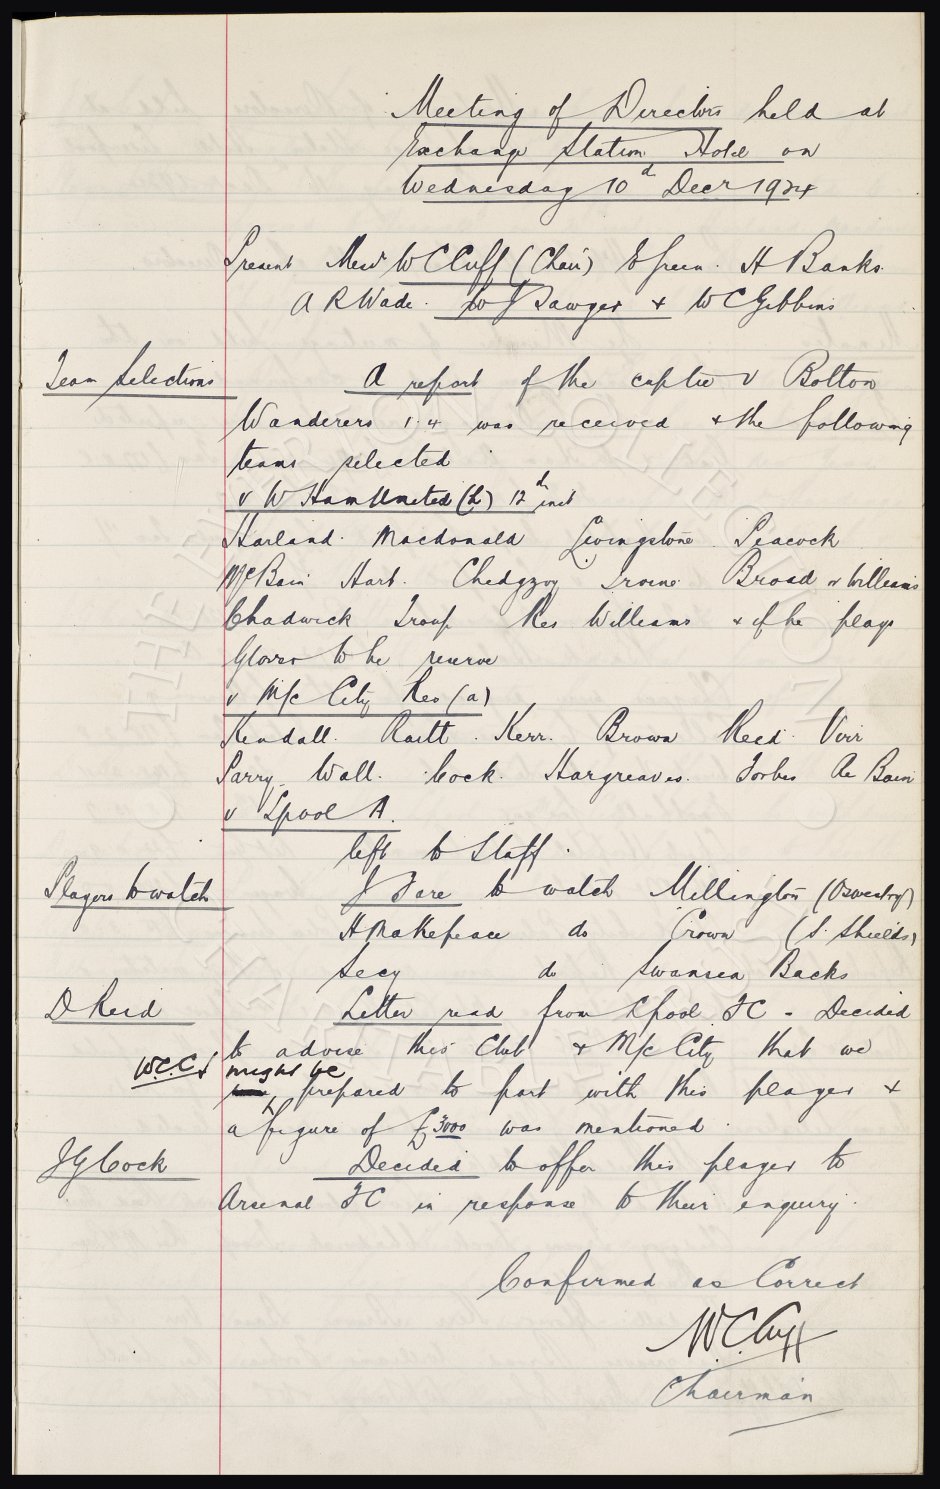 Meeting of Directors held at
Exchange Station Hotel on
Wednesday 10th Decr 1924
Present Messrs W C Cuff (Chair) E Green. H Banks.
A R Wade. W J Sawyer & W C Gibbins
Team Selections
A report of the cup tie v Bolton
Wanderers 1.4 was received & the following
teams selected
v W Ham United (h) 12th inst
Harland. Macdonald Livingstone. Peacock
McBain Hart. Chedgzoy Irvine Broad or Williams
Chadwick Troup Res Williams & if he plays
Glover to be reserve
v M/c City Res (a)
Kendall. Raitt. Kerr. Brown Reid. Virr
Parry. Wall. Cock. Hargreaves. Forbes Res Bain
v L'pool A.
left to Staff.
Players to watch
J Fare to watch Millington (Oswestry)
H Makepeace do Crown (S. Shields)
Secy do Swansea Backs
D Reid
Letter read from L'pool FC - Decided
to advise this Club & M/c City that we
W.C.C. might be
prepared to part with this player &
a figure of £3000 was mentioned.
J G Cock
Decided to offer this player to
Arsenal FC in response to their enquiry.
Confirmed as Correct
W.C. Cuff
Chairman